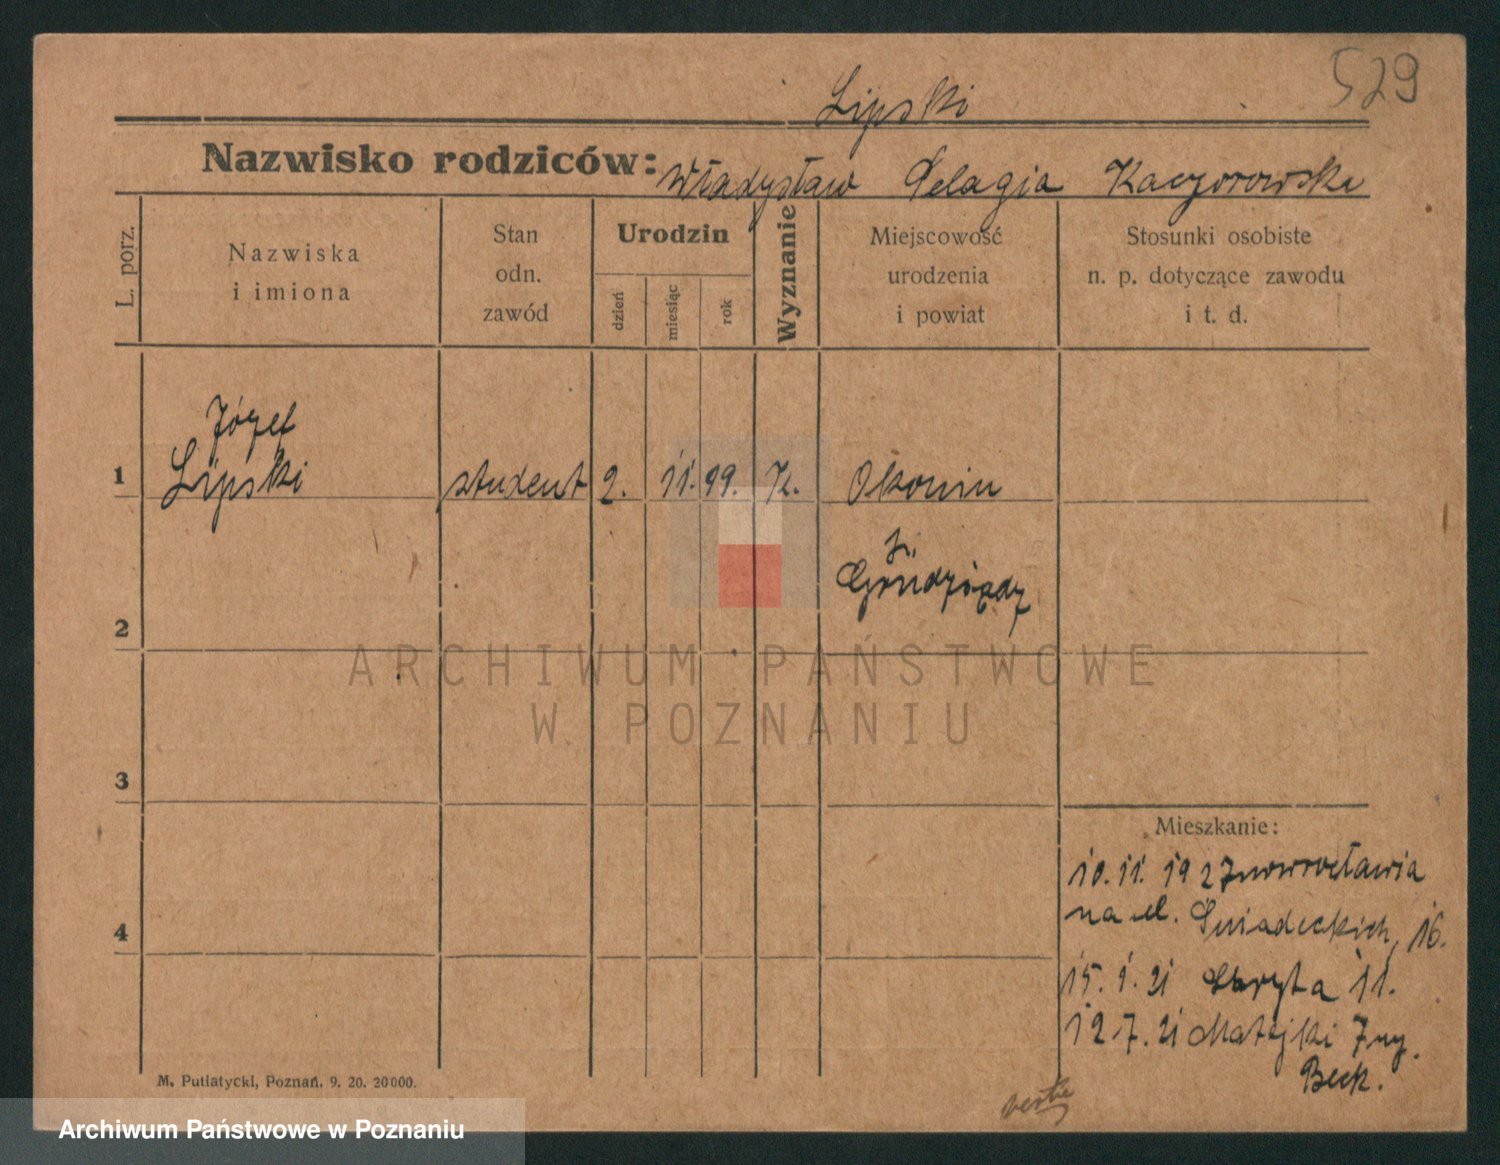 529
Lipski
Nazwisko rodziców: Władysław Pelagia Kaczorowska
L. porz.
Nazwiska
i imiona
Stan
odn.
zawód
Urodzin
dzień
miesiąc
rok
Wyznanie
Miejscowość
urodzenia
i powiat
Stosunki osobiste
n. p. dotyczące zawodu
i t. d.
Józef
1 Lipski student 2. 11. 99. K. Okonin
2
3
4
Mieszkanie:
10. 11. 19
na ul. Śniadeckich, 16.
15. 1. 21 Skryta 11.
12. 7. 21 Matejki
M. Putiatycki, Poznań. 9. 20. 20000.
ARCHIWUM PAŃSTWOWE
W POZNANIU
Archiwum Państwowe w Poznaniu